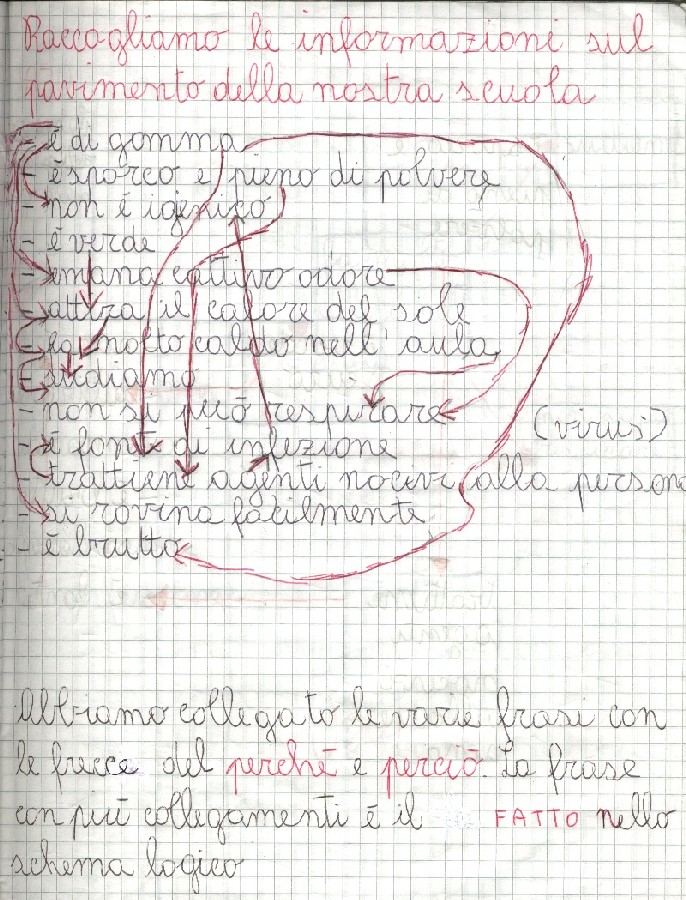 Raccogliamo le informazioni sul
pavimento della nostra scuola
- è di gomma
- è sporco e pieno di polvere
- non è igenico
- è verde
- emana cattivo odore
- attira il calore del sole
- fa molto caldo nell'aula
- sudiamo
- non si può respirare
- è fonte di infezione (virus)
- trattiene agenti nocivi alla persona
- si rovina facilmente
- è brutto
Abbiamo collegato le varie frasi con
le frecce del perché e perciò. La frase
con più collegamenti è il FATTO nello
schema logico